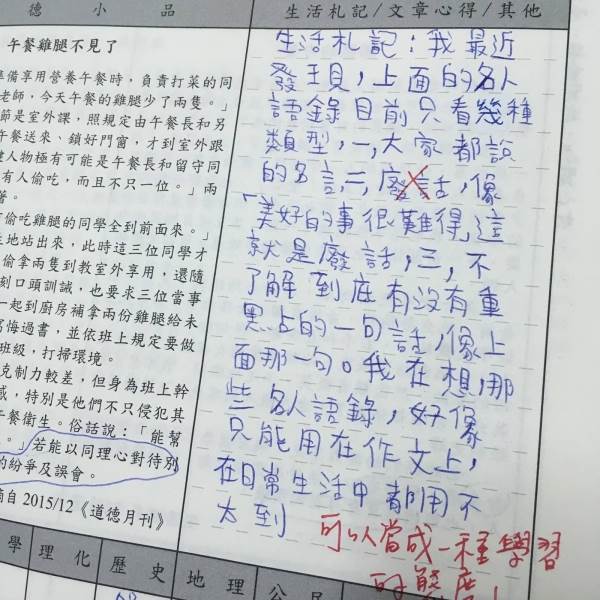 德 小 品
生活札記/文章心得/其他
午餐雞腿不見了
備享用營養午餐時，負責打菜的同
老師，今天午餐的雞腿少了兩隻。」
節是室外課，照規定由午餐長和另
午餐送來、鎖好門窗，才到室外跟
人物極有可能是午餐長和留守同
有人偷吃，而且不只一位。」兩
著。
偷吃雞腿的同學全到前面來。」
地站出來，此時這三位同學才
偷拿兩隻到教室外享用，還隨
刻口頭訓誡，也要求三位當事
一起到廚房補拿兩份雞腿給未
寫悔過書，並依班上規定要做
班級，打掃環境。
克制力較差，但身為班上幹
感，特別是他們不只侵犯其
午餐衛生。俗話說：「能幫
。」若能以同理心對待別
的紛爭及誤會。
摘自 2015/12《道德月刊》
生活札記：我最近
發現，上面的名人
語錄目前只看幾種
類型，一，大家都說
的名言，二，廢話，像
「美好的事很難得」這
就是廢話，三，不
了解到底有沒有重
點的一句話，像上
面那一句。我在想，那
些名人語錄，好像
只能用在作文上，
在日常生活中都用不
太到
可以當成一種學習
的態度！
學 理 化 歷 史 地 理 公 民